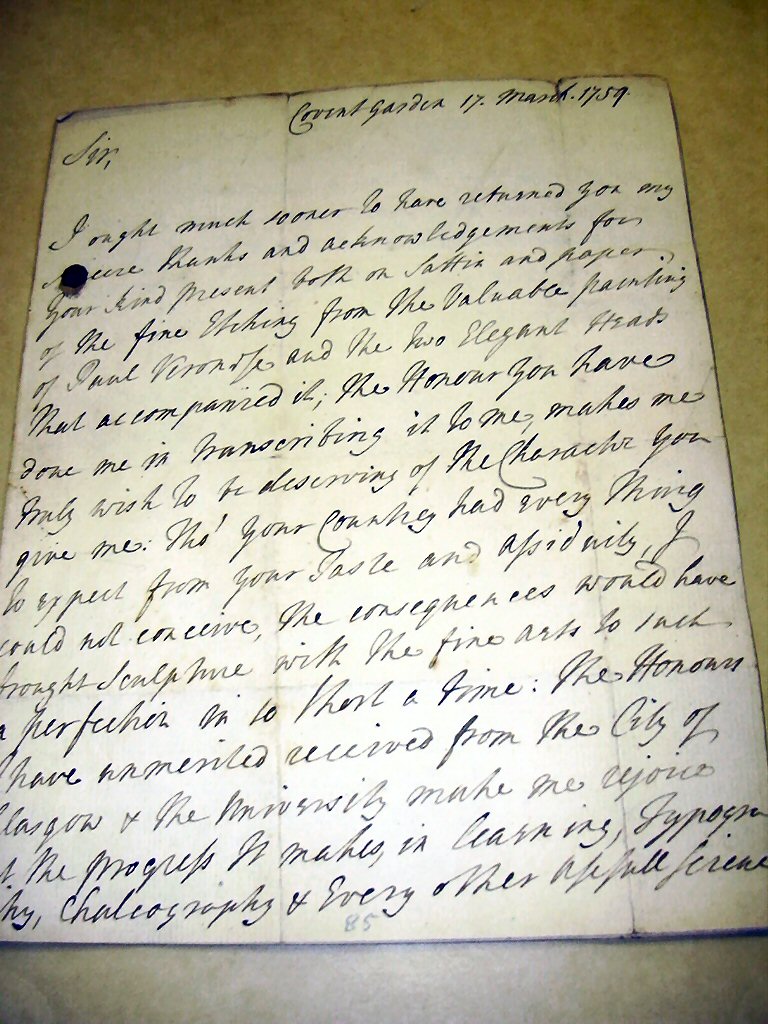 Covent Garden 17. March. 1759.
Sir,
I ought much sooner to have returned you my
sincere thanks and acknowledgements for
your kind present both on Sattin and paper
of the fine Etching from the Valuable painting
of Paul Veronese and the two Elegant Heads
that accompanied it; the Honour you have
done me in transcribing it to me, makes me
truly wish to be deserving of the Character you
give me: Tho' your Country had every thing
to expect from your Taste and assiduity, I
could not conceive, the consequences would have
brought Sculpture with the fine arts to such
a perfection in so short a time: The Honours
I have unmerited received from the City of
Glasgow & the University make me rejoice
at the progress It makes, in learning, Typogra
phy, Chalcography & Every other usefull Science
85